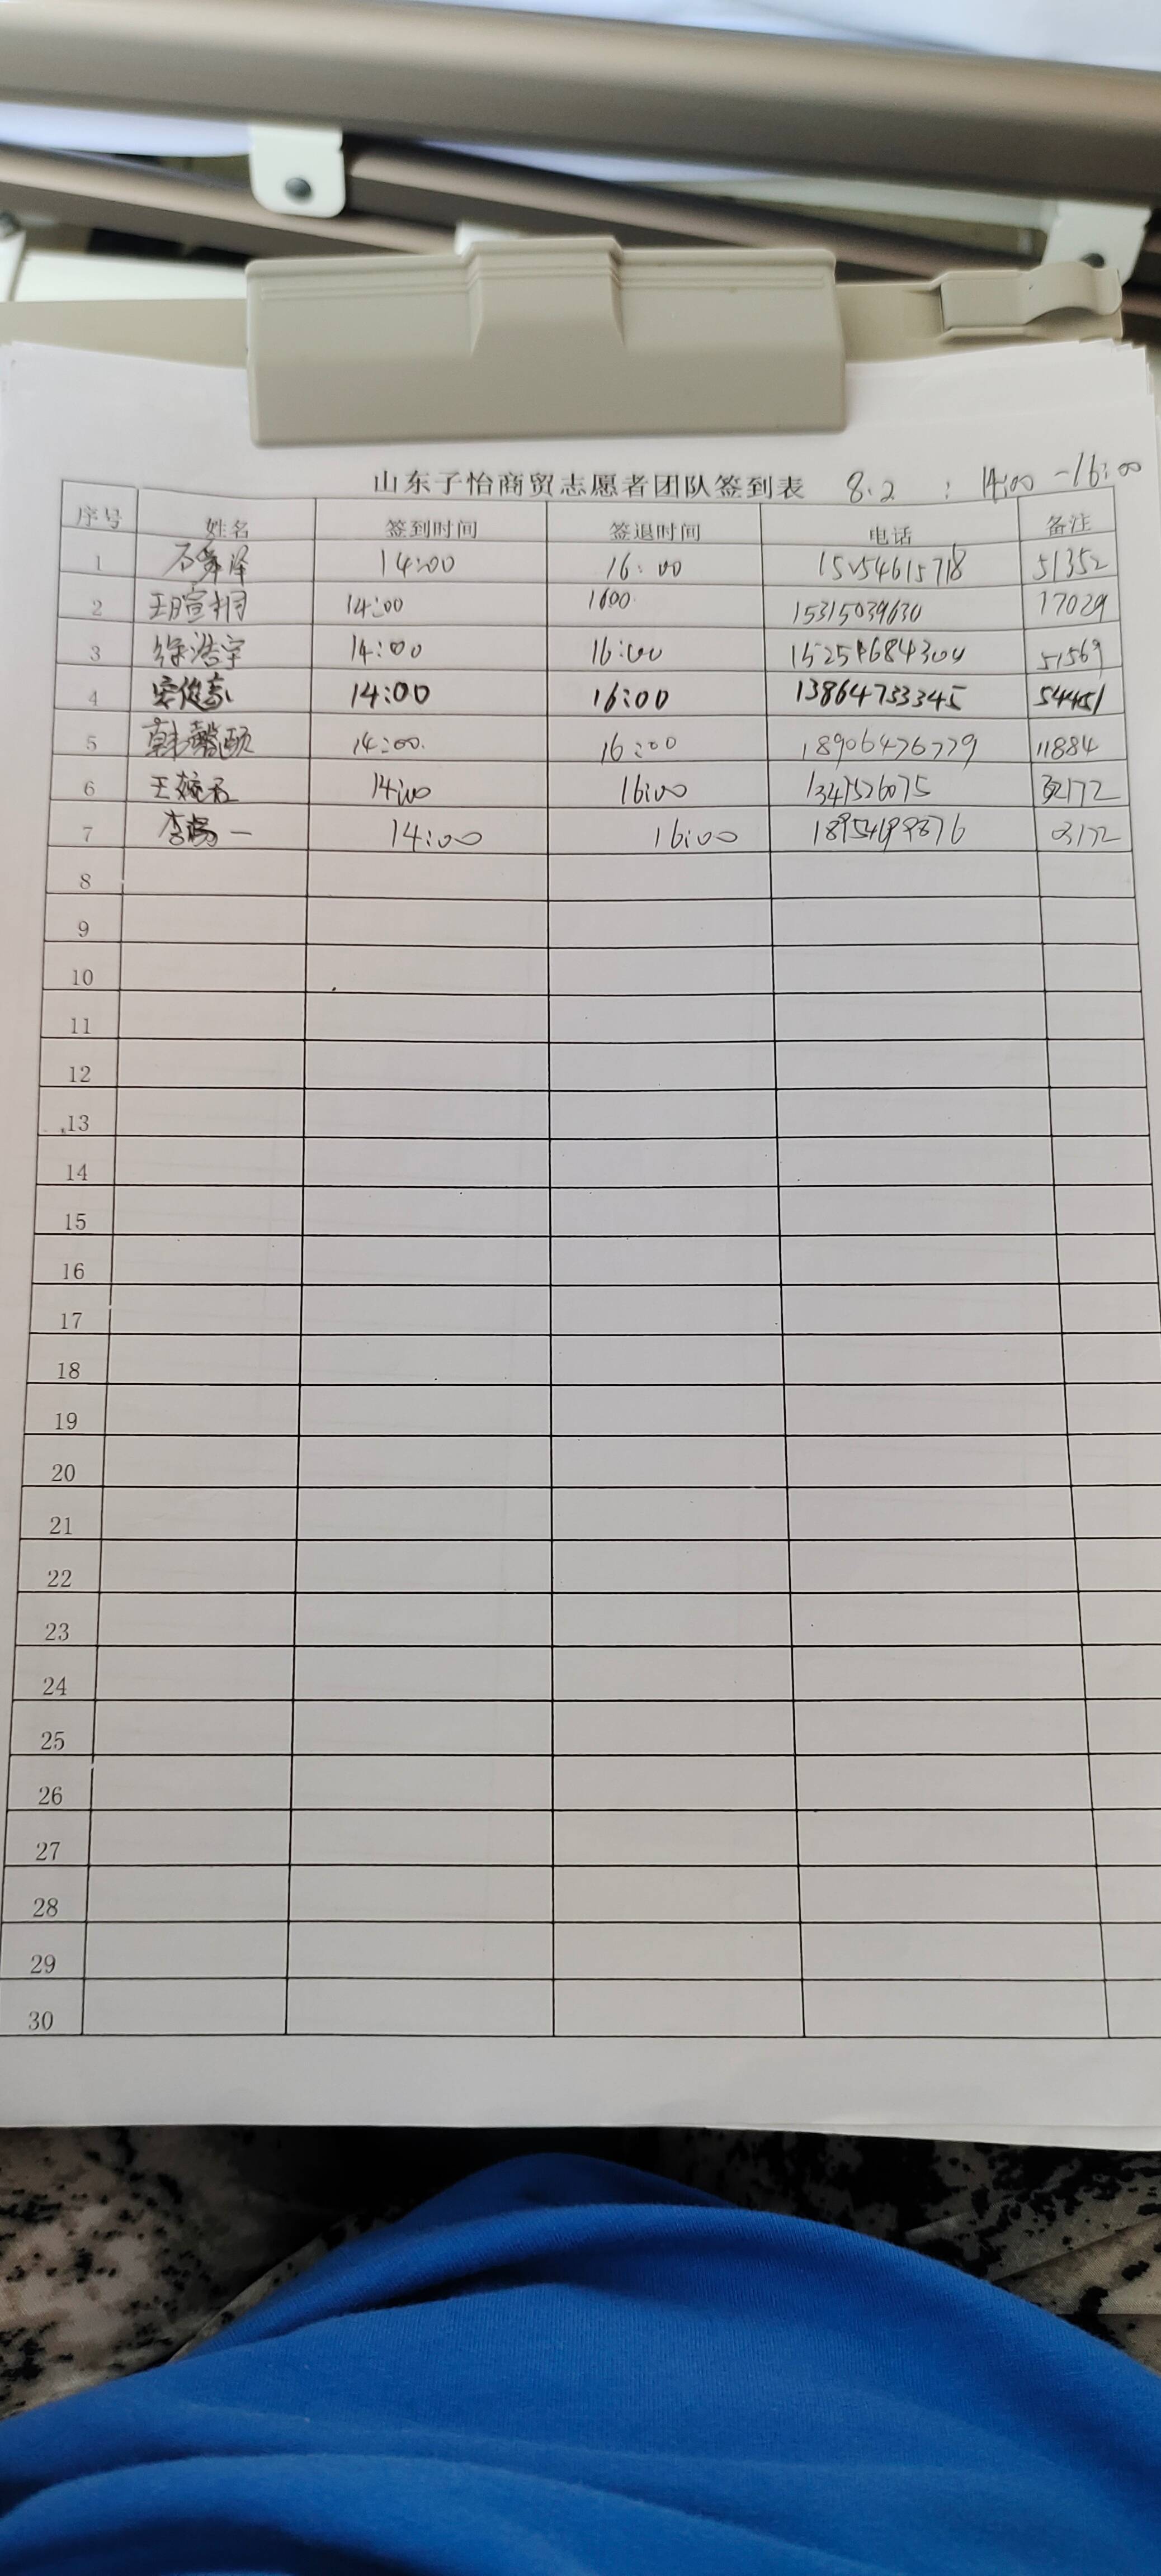 山东子怡商贸志愿者团队签到表 8.2 : 14:00-16:00
序号 姓名 签到时间 签退时间 电话 备注
1 石舜泽 14:00 16:00 15154615718 51352
2 王暄桐 14:00 1600 15315039630 17029
3 徐浩宇 14:00 16:00 15254684304 51569
4 14:00 16:00 13864733345 54451
5 韩馨颐 14:00 16:00 18906476779 11884
6 王婉君 14:00 16:00 1347526075 32172
7 李易一 14:00 16:00 18954699876 03172
8
9
10
11
12
13
14
15
16
17
18
19
20
21
22
23
24
25
26
27
28
29
30